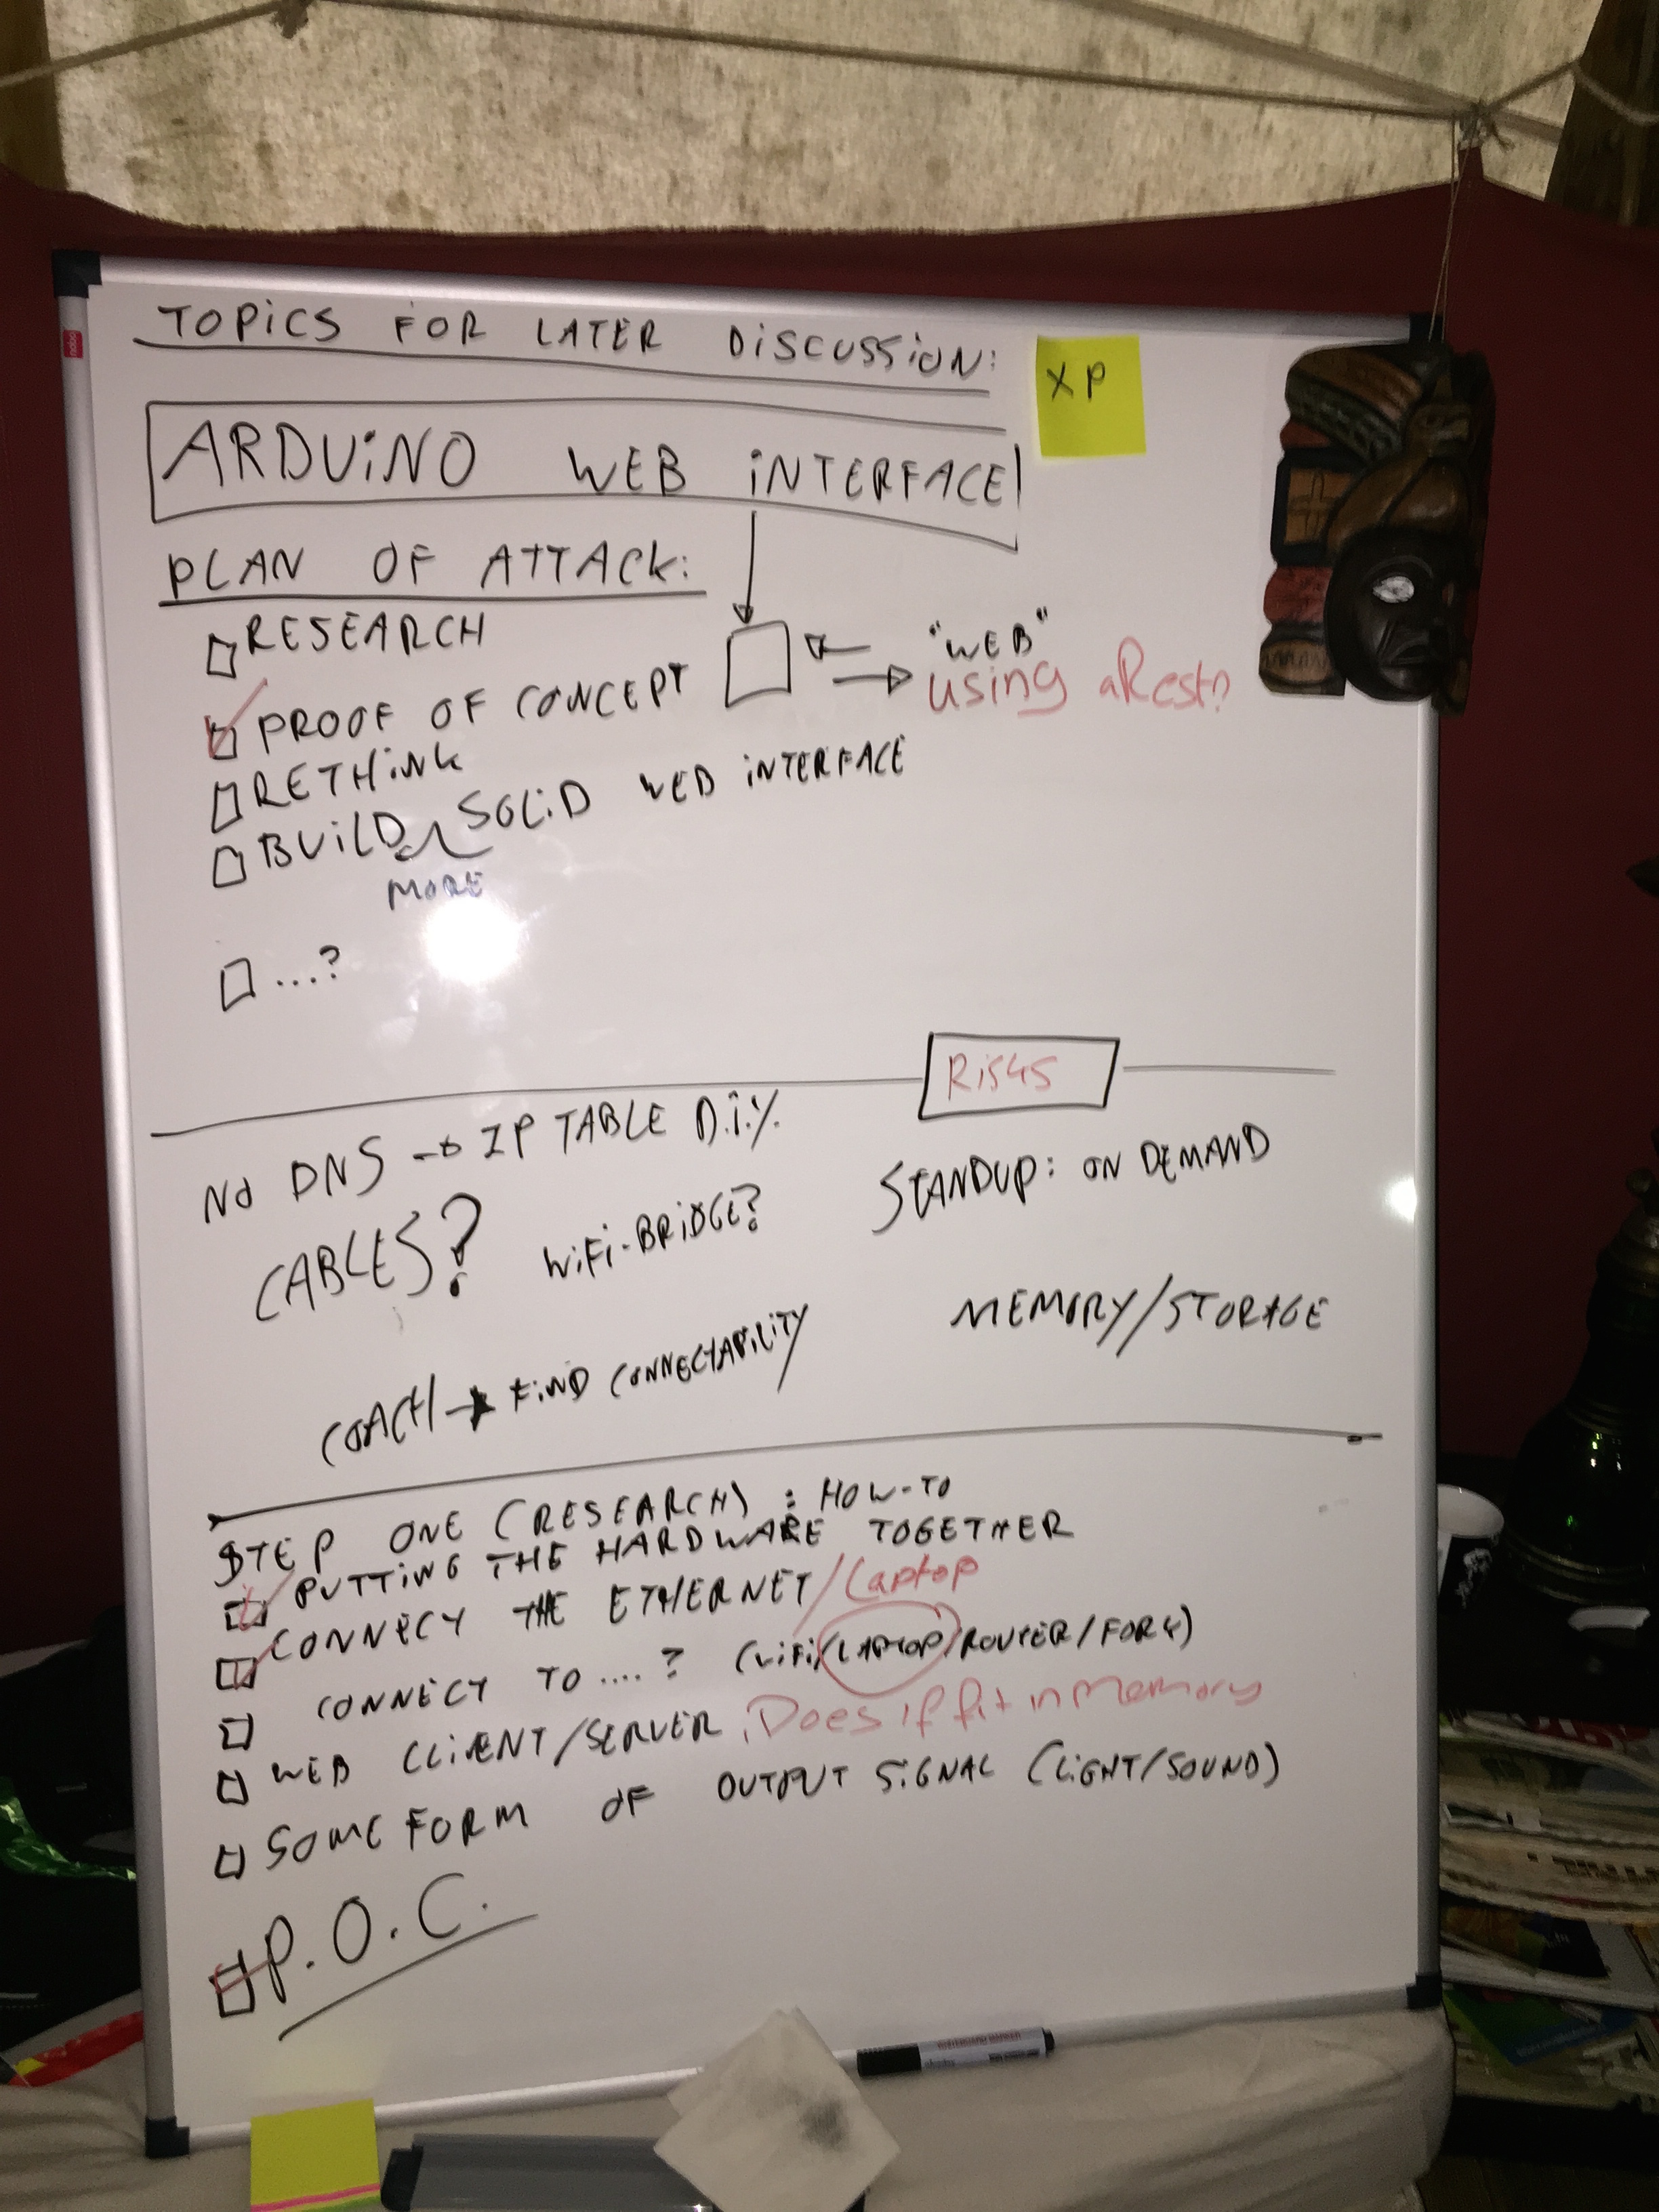 TOPICS FOR LATER DISCUSSION:
XP
ARDUINO WEB INTERFACE
PLAN OF ATTACK:
RESEARCH
"WEB"
using aRest?
PROOF OF CONCEPT
RETHINK
BUILD SOLID WEB INTERFACE
MORE
...?
Risks
NO DNS → IP TABLE D.I.Y.
STANDUP: ON DEMAND
CABLES? WIFI-BRIDGE?
MEMORY/STORAGE
COACH → FIND CONNECTABILITY
STEP ONE (RESEARCH): HOW-TO
PUTTING THE HARDWARE TOGETHER
CONNECT THE ETHERNET/Laptop
CONNECT TO ....? (WIFI/LAPTOP/ROUTER/FORK)
WEB CLIENT/SERVER Does if fit in Memory
SOME FORM OF OUTPUT SIGNAL (LIGHT/SOUND)
P.O.C.
nobo